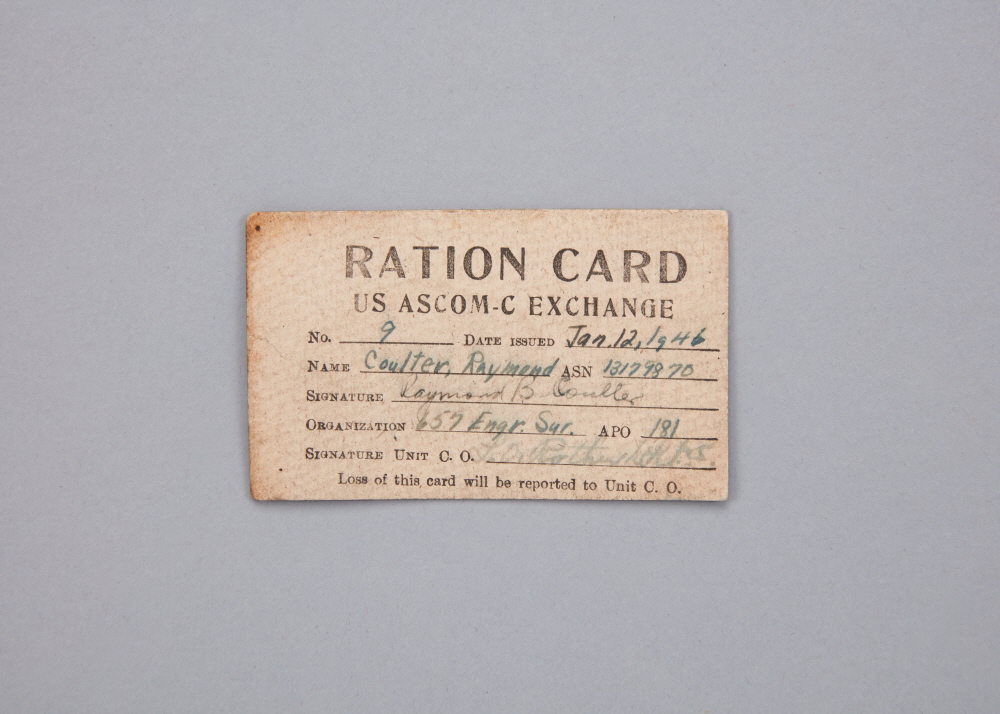 RATION CARD
US ASCOM-C EXCHANGE
No. 9 DATE ISSUED Jan. 12, 1946
NAME Coulter, Raymond ASN 13179870
SIGNATURE Raymond B Coulter
ORGANIZATION 657 Engr. Sur. APO 181
SIGNATURE UNIT C. O.
Loss of this card will be reported to Unit C. O.